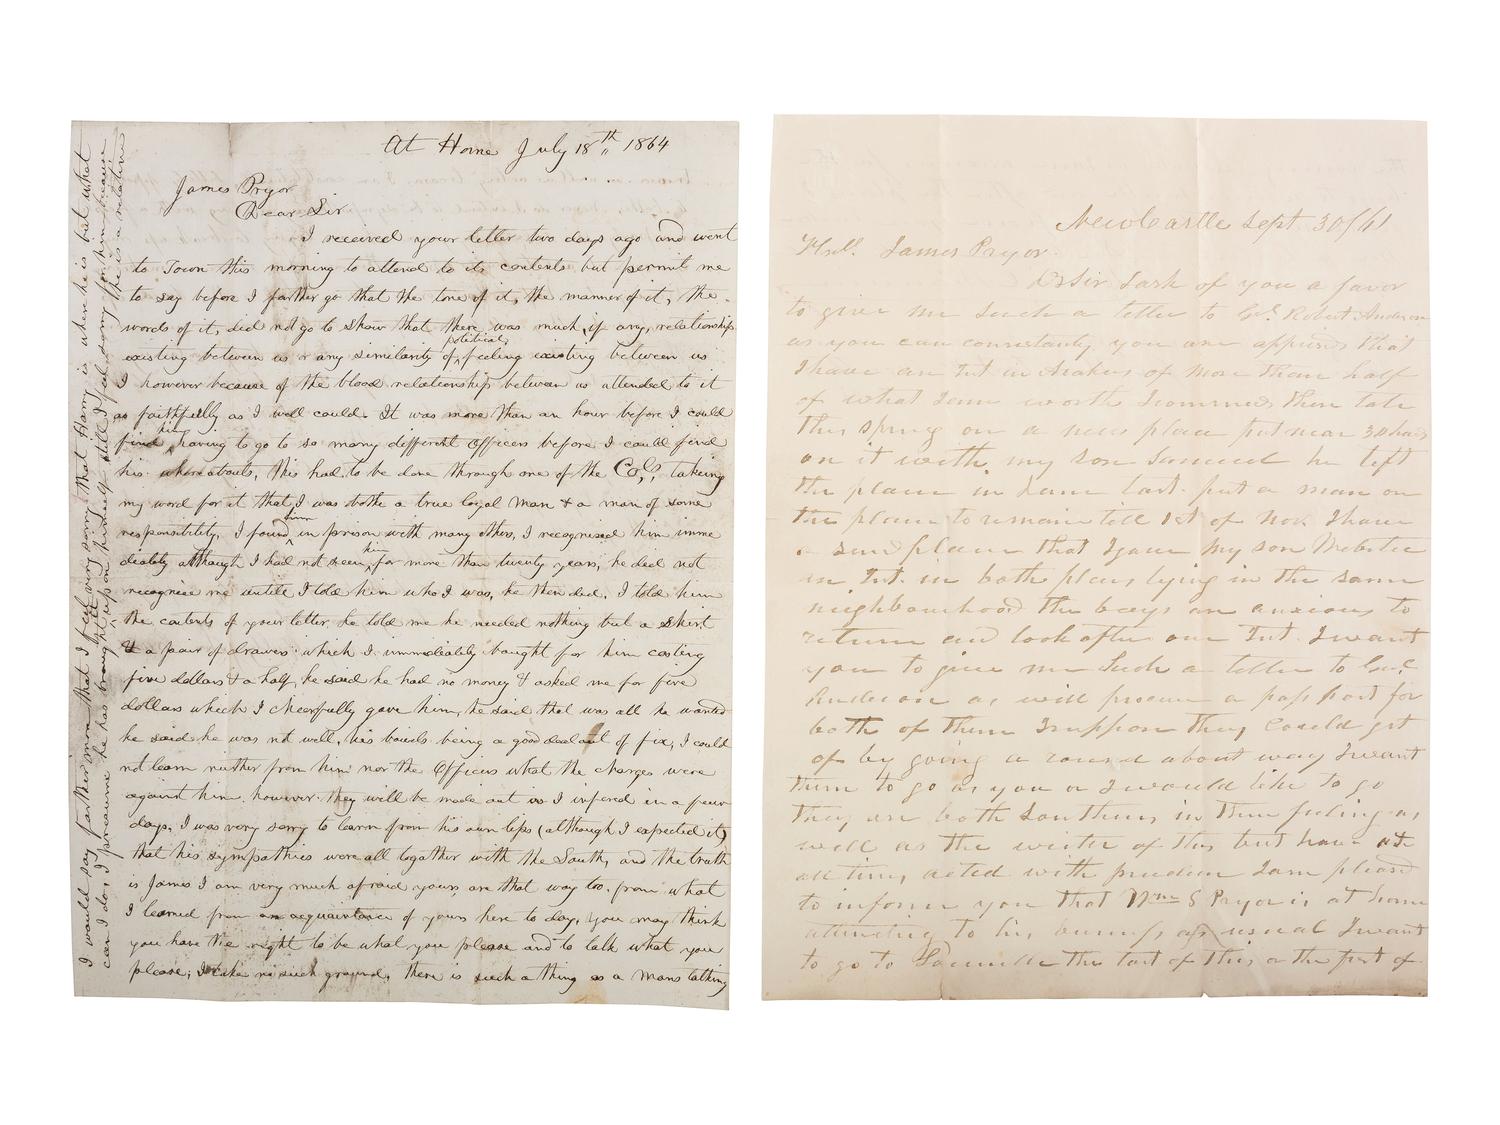 At Home July 18th 1864
James Pryor
Dear Sir
I received your letter two days ago and went
to Town this morning to attend to its contents but permit me
to say before I farther go that the tone of it, the manner of it, the
words of it, did not go to show that there was much, if any, relationship
existing between us or any similarity of political feeling existing between us
I however because of the blood relationship between us attended to it
as faithfully as I well could. It was more than an hour before I could
find him, having to go to so many different Officers before I could find
his whereabouts, this had to be done through one of the Cols, takeing
my word for it that I was bothe a true loyal man & a man of some
responsibility, I found him in prison with many others, I recognised him imme
diately although I had not seen him for more than twenty years, he did not
recognise me untill I told him who I was, he then did. I told him
the contents of your letter, he told me he needed nothing but a Shirt
& a pair of drawers which I immediately bought for him costing
five dollars & a half, he said he had no money & asked me for five
dollars which I cheerfully gave him, he said that was all he wanted
he said he was not well, his bowels being a good deal out of fix, I could
not learn neither from him nor the Officers what the charges were
against him. however they will be made out as I infered in a few
days, I was very sorry to learn from his own lips (although I expected it)
that his sympathies were all together with the South, and the truth
is James I am very much afraid yours are that way too. from what
I learned from an acquaintance of yours here to day, you may think
you have the right to be what you please and to talk what you
please; I take no such ground, there is such a thing as a mans talking
I would say farther more that I feel very sorry that Harry is where he is but what
can I do, I presume he has brought it upon himself still I feel sorry for him because
he is a relative
NewCastle Sept 30/61
James Pryor
Dr Sir I ask of you a favor
to give me such a letter to Gel Robert Anderson
as you can consistantly, you are apprised that
I have an Int in Arkns of more than half
of what I am worth I commenced there late
this spring on a new place put near 30 hands
on it with my son Samuel he left
the place in June last. put a man on
the place to remain till 1st of Nov. I have
place that I gave my son Webster
an Int. in both places lying in the same
neighbourhood the boys are anxious to
return and look after our Int. I want
you to give me such a letter to Genl
Anderson as will procure a passport for
both of them I suppose they could get
of by going a round about way I want
them to go as you or I would like to go
they are both Southern in their feeling as
well as the writer of this but have at
all times acted with prudence I am pleased
to inform you that Wm S Pryor is at home
attending to his business as usual I want
to go to Louisville the last of this or the first of